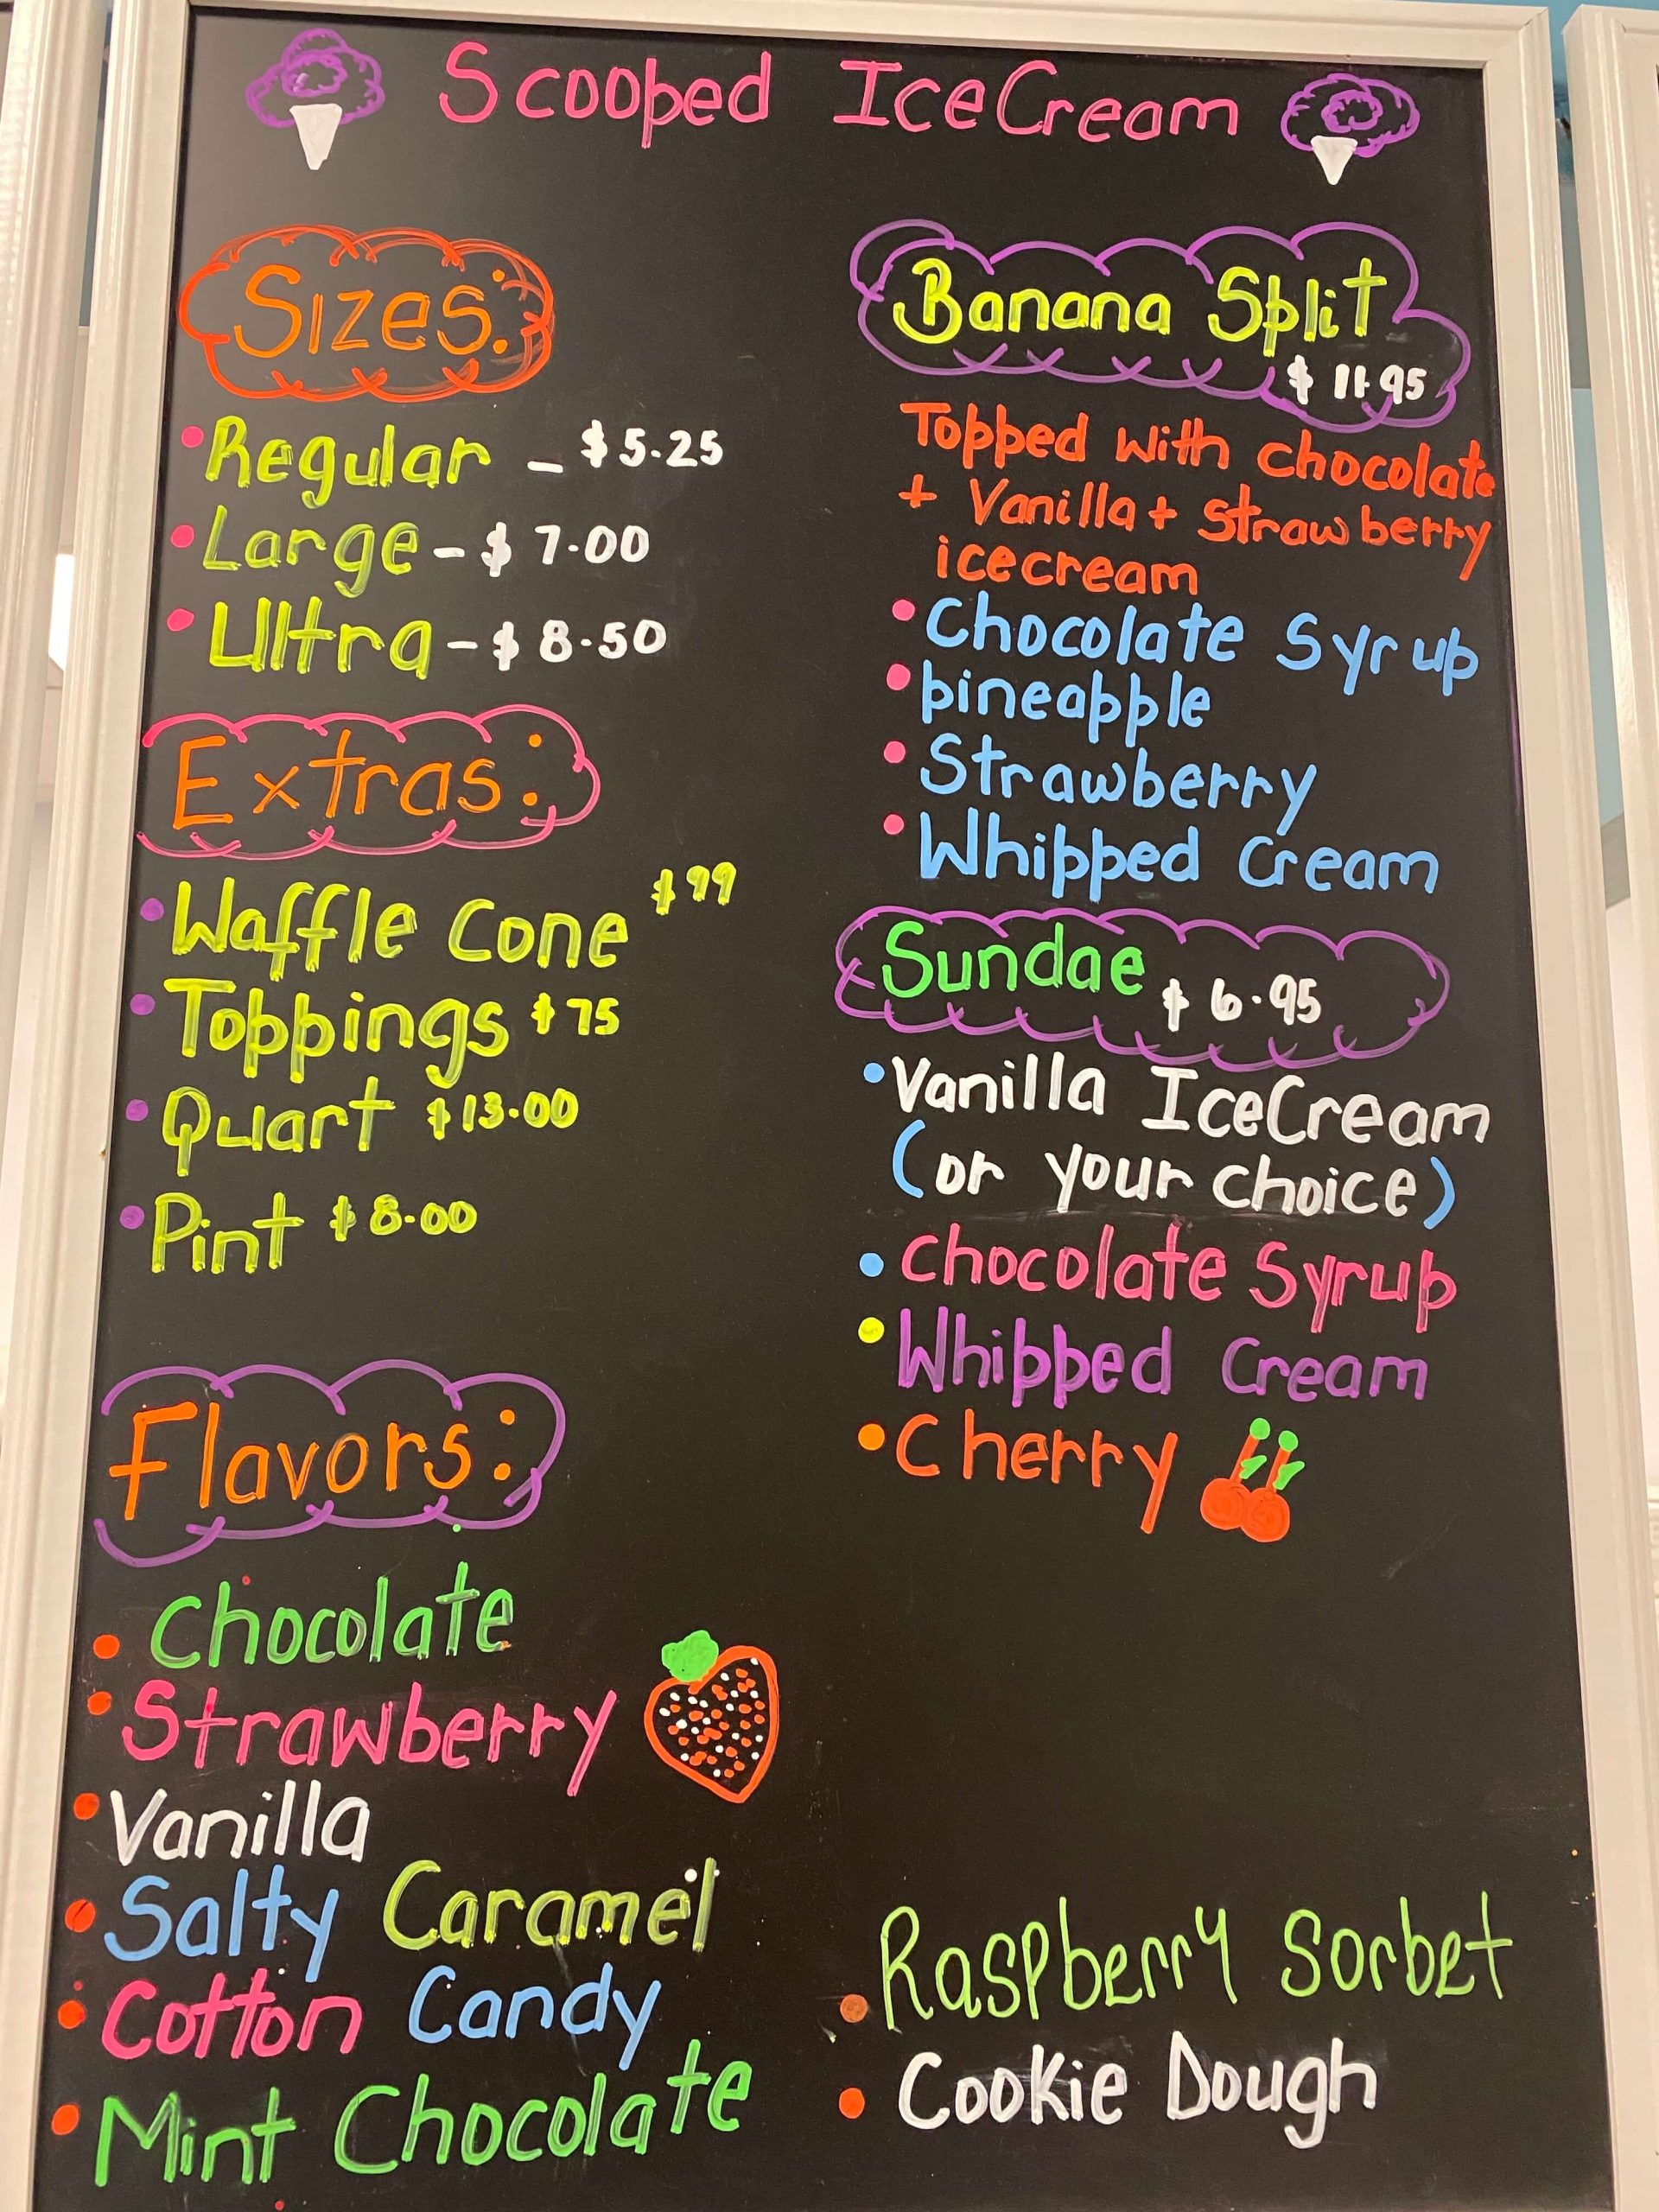 Scooped IceCream
Sizes:
Regular - $5.25
Large - $7.00
Ultra - $8.50
Extras:
Waffle Cone $99
Toppings $75
Quart $13.00
Pint $8.00
Flavors:
Chocolate
Strawberry
Vanilla
Salty Caramel
Cotton Candy
Mint Chocolate
Banana Split
$11.95
Topped with chocolate
+ Vanilla + strawberry
icecream
Chocolate Syrup
pineapple
Strawberry
Whipped Cream
Sundae $6.95
Vanilla IceCream
(or your choice)
Chocolate Syrup
Whipped Cream
Cherry
Raspberry Sorbet
Cookie Dough